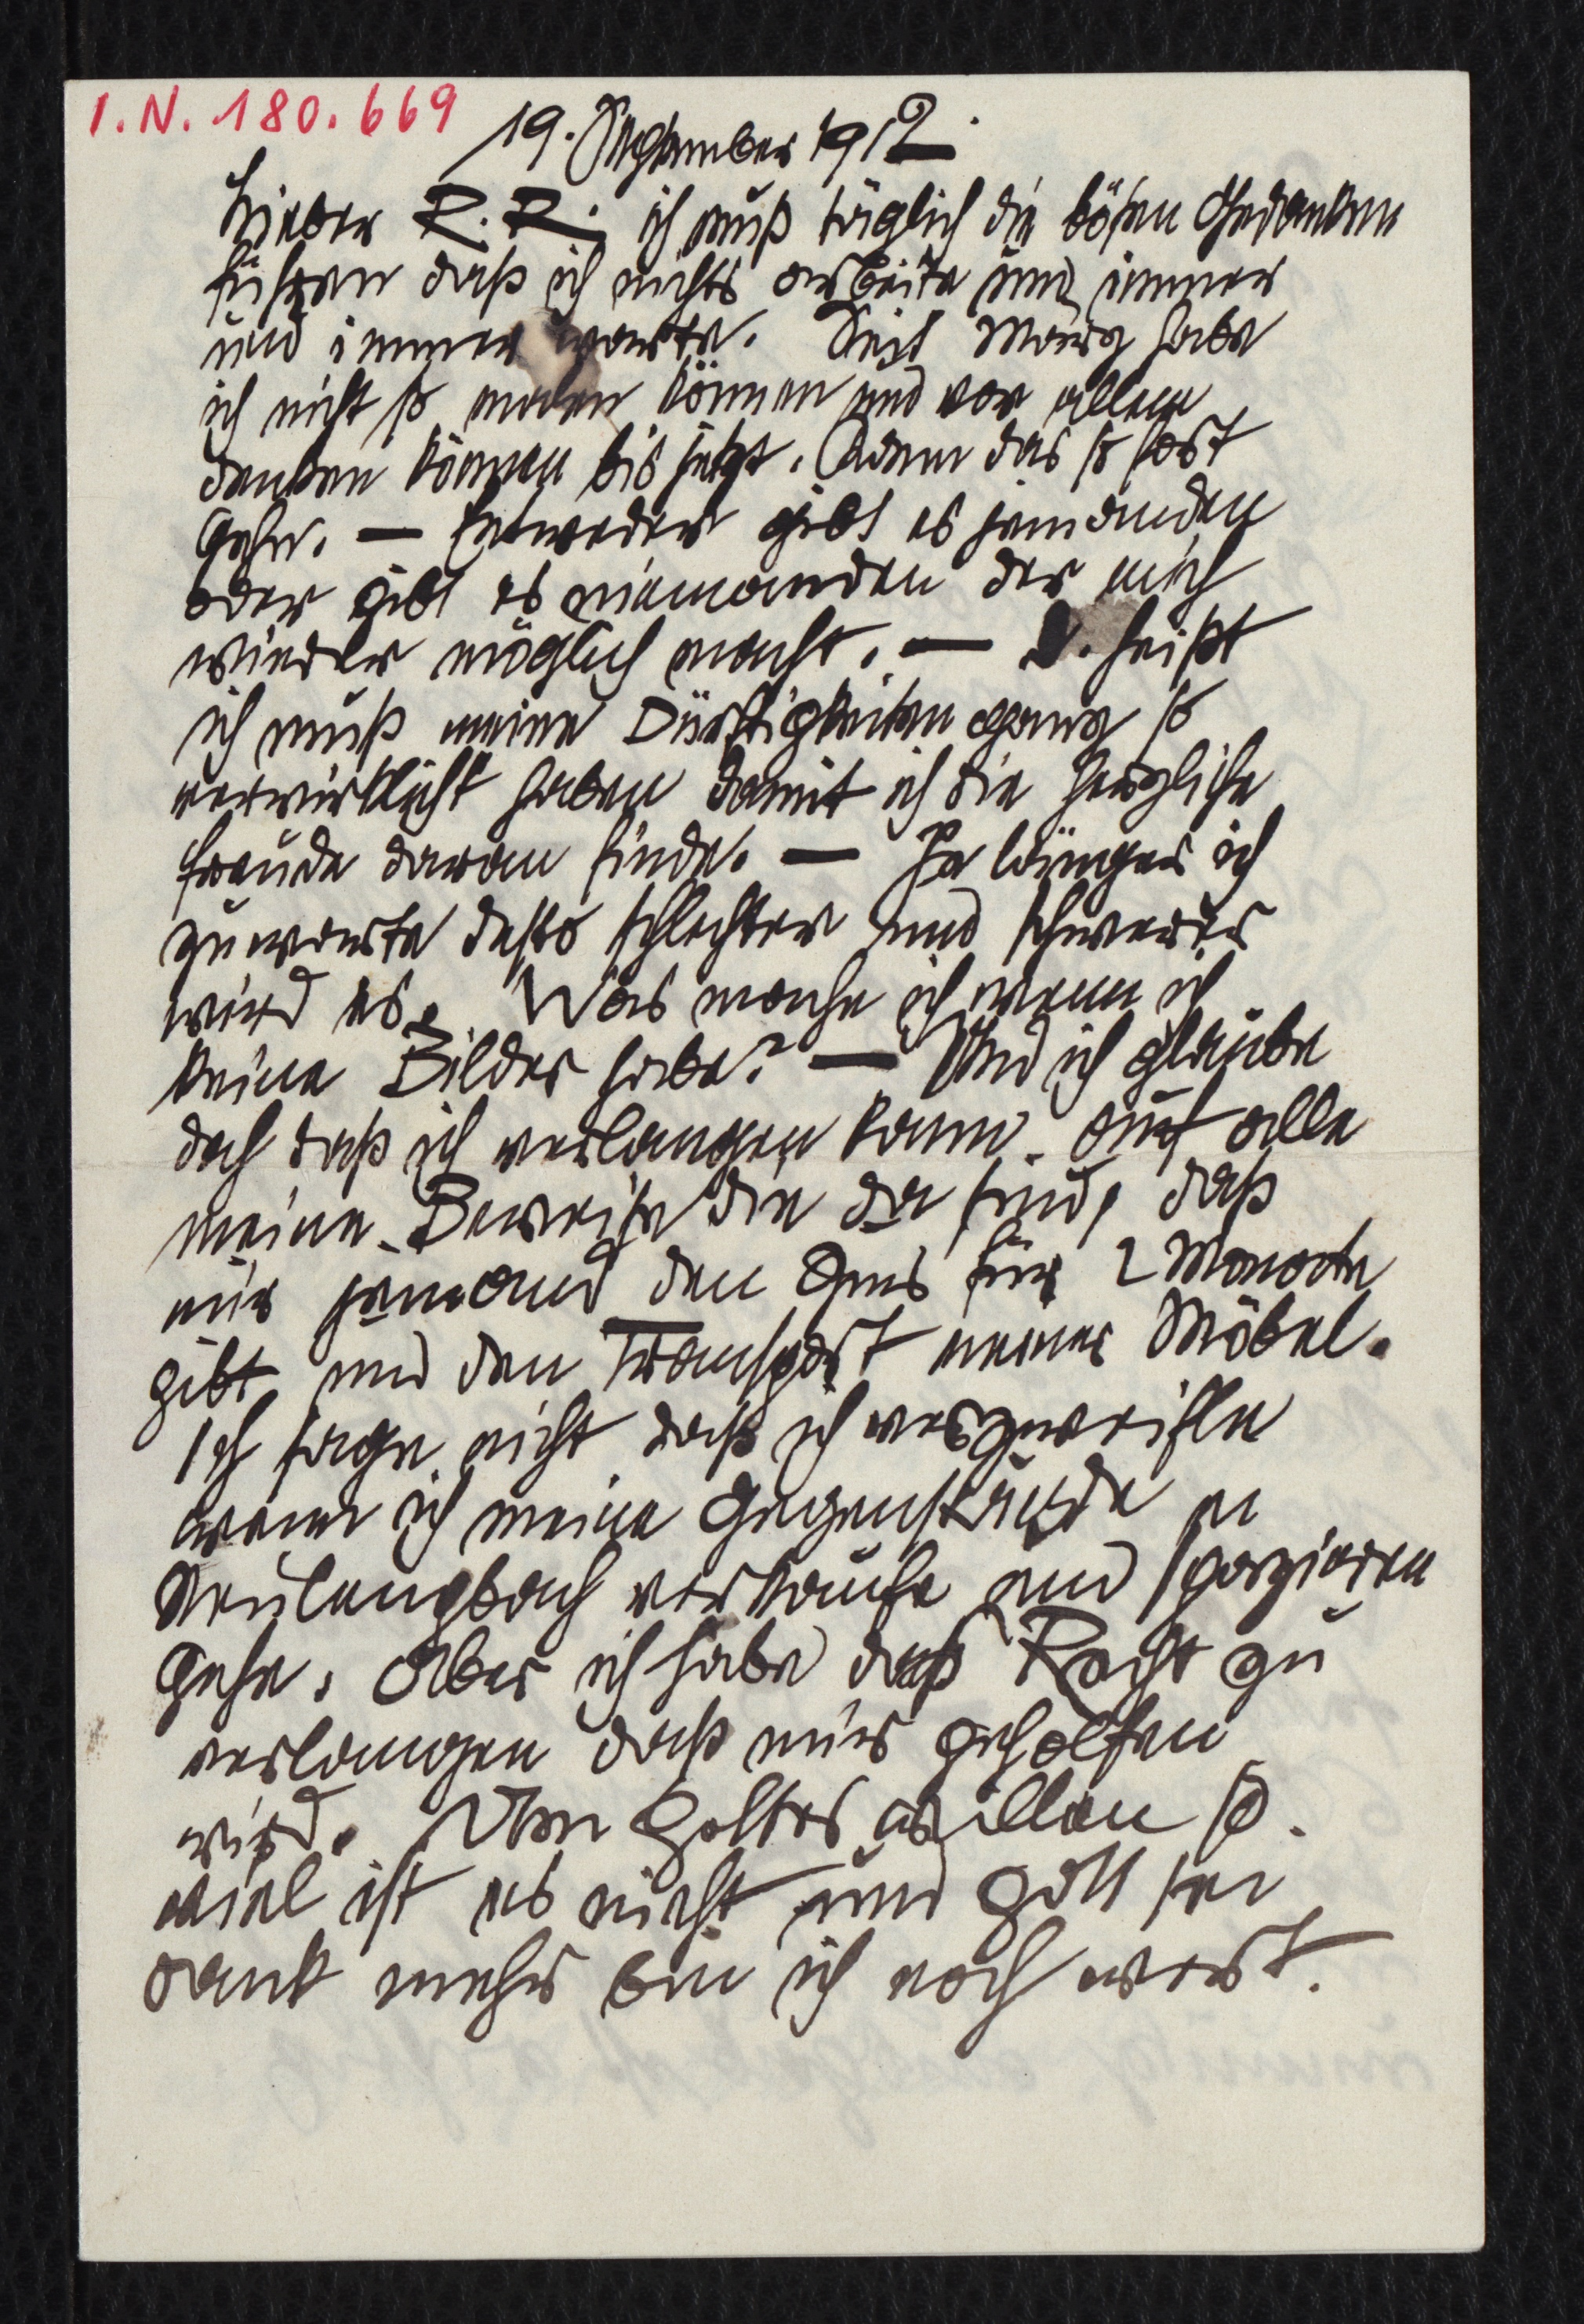 I.N. 180.669
19. September 1912.
Lieber R. R. ich muß täglich die bösen Gedanken
führen daß ich nichts arbeite und immer
und immer warte. Seit März habe
ich nicht so malen können und vor allem
denken können bis jetzt. das so fort
gehn. — Entweder gibt es jemanden
oder gibt es niemanden der mich
wieder möglich macht. — D. heißt
ich muß meine Dürftigkeiten ganz so
verwirklicht haben damit ich die herzliche
freude daran finde. — Je länger ich
zuwarte desto schlechter und schwerer
wird es. Was mache ich wenn ich
keine Bilder habe? — Und ich glaube
doch daß ich verlangen kann auf alle
meine Beweise die da sind, daß
mir jemand den Zins für 2 Monate
gibt und den Transport meiner Möbel.
Ich sage nicht daß ich verzweifle
wenn ich meine Gegenstände in
Neulengbach verkaufe und spazieren
gehe. Aber ich habe daß Recht zu
verlangen daß mir geholfen
wird. Um Gottes willen so
viel ist es nicht und gott sei
dank mehr bin ich noch wert.